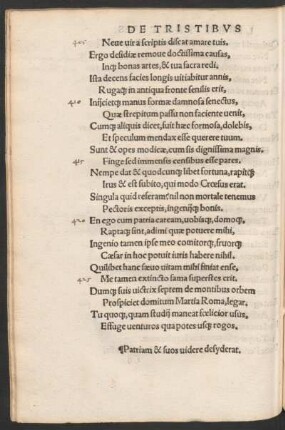 DE TRISTIBVS
405 Neue uir a scriptis discat amare tuis.
Ergo desidiæ remoue doctissima causas,
Inq; bonas artes, & tua sacra redi.
Ista decens facies longis uitiabitur annis,
Rugaq; in antiqua fronte senilis erit.
410 Inijcietq; manus formæ damnosa senectus,
Quæ strepitum passu non faciente uenit.
Cumq; aliquis dicet, fuit hæc formosa, dolebis,
Et speculum mendax esse querere tuum.
Sunt & opes modicæ, cum sis dignissima magnis.
415 Finge sed immensis censibus esse pares.
Nempe dat & quodcunq; libet fortuna, rapitq;
Irus & est subito, qui modo Crœsus erat.
Singula quid referam? nil non mortale tenemus
Pectoris exceptis, ingenijq; bonis.
420 En ego cum patria caream, uobisq;, domoq;,
Raptaq; sint, adimi quæ potuere mihi,
Ingenio tamen ipse meo comitorq;, fruorq;
Cæsar in hoc potuit iuris habere nihil.
Quilibet hanc sæuo uitam mihi finiat ense,
425 Me tamen extincto fama superstes erit.
Dumq; suis uictrix septem de montibus orbem
Prospiciet domitum Martia Roma, legar.
Tu quoq;, quam studij maneat fœlicior usus,
Effuge uenturos qua potes usq; rogos.
¶Patriam & suos uidere desyderat.